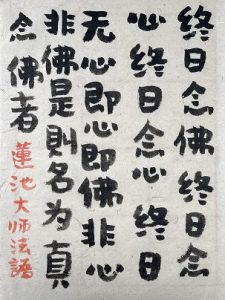 終日念佛終日念
心終日念心終日
无心即心即佛非心
非佛是則名为真
念佛者
蓮池大师法語